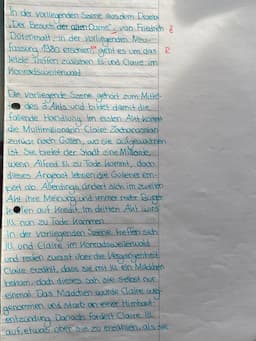 In der vorliegenden Szene aus dem Drama
„Der Besuch der alten Dame", von Friedrich
Dürrenmatt in der vorliegenden Neu-
fassung 1980 erschienen, geht es um das R
letzte Treffen zwischen Ill und Claire im
Konradsweilerwald.
Die vorliegende Szene gehört zum Mittel-
des 3. Akts und bildet damit die
fallende Handlung. Im ersten Akt kommt
die Multimillionärin Claire Zachanassian
zurück nach Güllen, wo sie aufgewachsen
ist. Sie bietet der Stadt eine Milliarde,
wenn Alfred Ill zu Tode kommt, doch
dieses Angebot lehnen die Güllener em-
pört ab. Allerdings ändert sich im zweiten
Akt ihre Meinung und immer mehr Bürger
leben auf Kredit. Im dritten Akt wird
Ill nun zu Tode kommen.
In der vorliegenden Szene treffen sich
Ill und Claire im Konradsweilerwald
und reden zuerst über die Vergangenheit.
Claire erzählt, dass sie mit Ill ein Mädchen
bekam, doch dieses sah sie selbst nur
einmal. Das Mädchen wurde Claire weg-
genommen und starb an einer Hirnhaut-
entzündung. Danach fordert Claire Ill
auf, etwas über sie zu erzählen, als sie